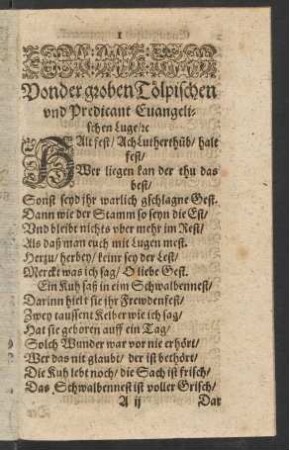 1
Von der groben Tölpischen
vnd Predicant Euangeli-
schen Luge/ꝛc
HAlt fest/ Ach Lutherthůb/ halt
fest/
Wer liegen kan der thu das
best/
Sonst seyd jhr warlich gschlagne Gest.
Dann wie der Stamm so seyn die Est/
Vnd bleibt nichts vber mehr im Rest/
Als daß man euch mit Lugen mest.
Herzu/ herbey/ keinr sey der Lest/
Merckt was ich sag/ O liebe Gest.
Ein Kuh saß in eim Schwalbennest/
Darinn hielt sie ihr Frewdenfest/
Zwey taussent Kelber wie ich sag/
Hat sie geboren auff ein Tag/
Solch Wunder war vor nie erhört/
Wer das nit glaubt/ der ist bethört/
Die Kuh lebt noch/ die Sach ist frisch/
Das Schwalbennest ist voller Grisch/
A ij Dar